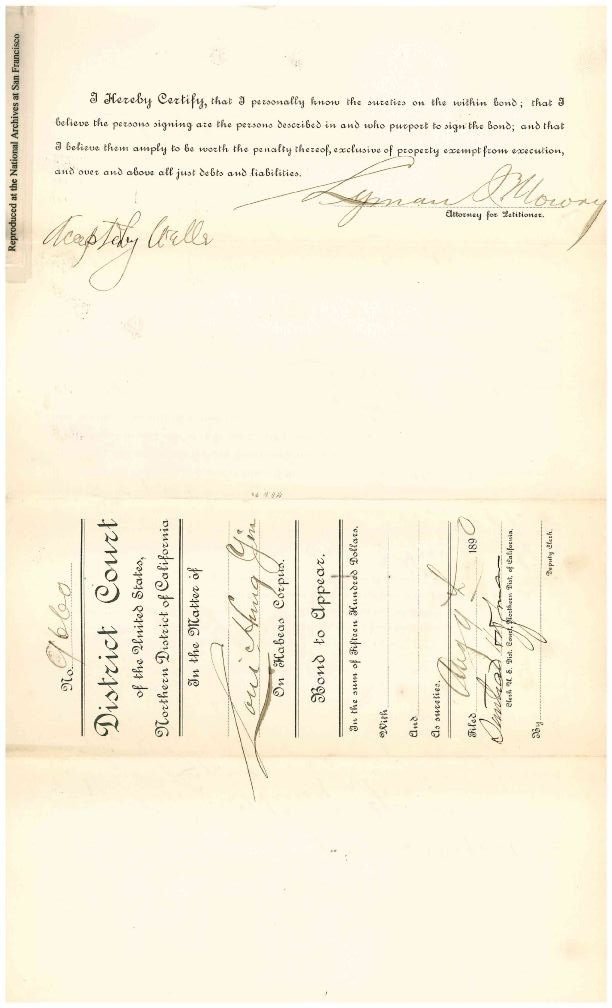 Reproduced at the National Archives at San Francisco
I Hereby Certify, that I personally know the sureties on the within bond; that I
believe the persons signing are the persons described in and who purport to sign the bond; and that
I believe them amply to be worth the penalty thereof, exclusive of property exempt from execution,
and over and above all just debts and liabilities.
Lyman I. Mowry
Attorney for Petitioner.
No. 9660
District Court
of the United States,
Northern District of California
In the Matter of
On Habeas Corpus.
Bond to Appear.
In the sum of Fifteen Hundred Dollars.
With
And
As sureties.
Filed Aug 1890
Clerk U. S. Dist. Court, Northern Dist. of California.
By
Deputy Clerk.